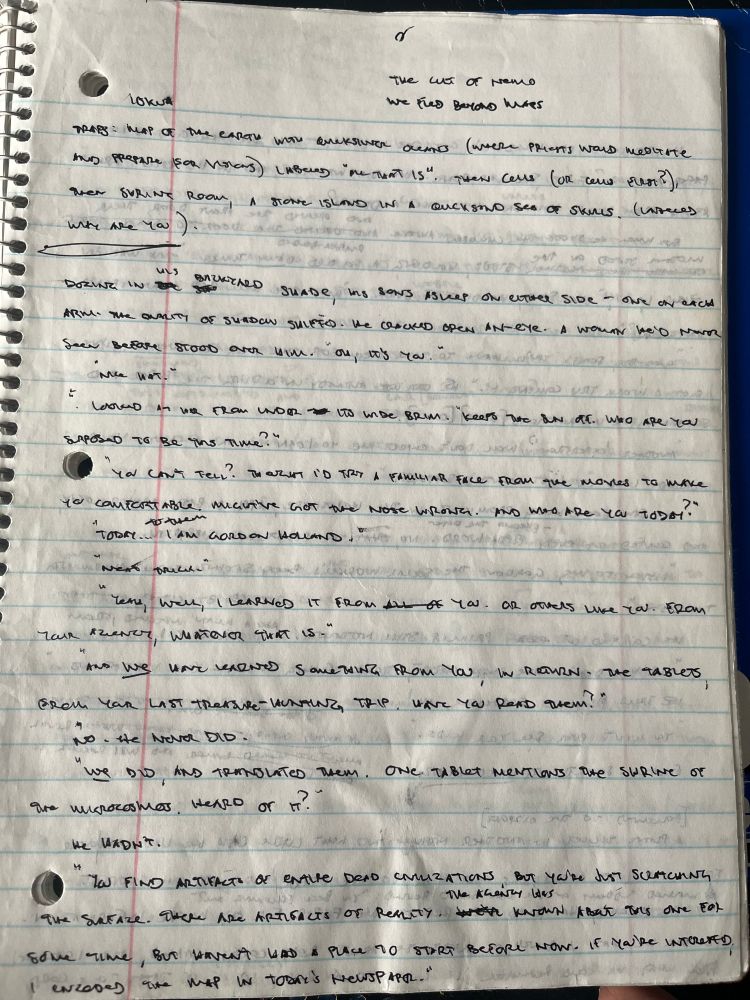 The Cult of Nemo
We Find Beyond Maps
Traps: Map of the Earth with quicksilver oceans (where priests would meditate
and prepare for visions) labeled "All that is". Then cells (or cells first?),
then shrine room, a stone island in a quicksand sea of skulls. (Labeled
Why are you).
Dozing in his backyard shade, his sons asleep on either side – one on each
arm. The quality of shadow shifted. He cracked open an eye. A woman he'd never
seen before stood over him. "Oh, it's you."
"Nice hat."
Looked at her from under its wide brim. "Keeps the sun off. Who are you
supposed to be this time?"
"You can't tell? Thought I'd try a familiar face from the movies to make
you comfortable. Might've got the nose wrong. And who are you today?"
"Today... to them I am Gordon Holland."
"Neat trick."
"Yeah, well, I learned it from all of you. Or others like you. From
your agency, whatever that is."
"And we have learned something from you, in return. The tablets,
from your last treasure-hunting trip. Have you read them?"
No. He never did.
"We did, and translated them. One tablet mentions the Shrine of
the Microcosmos. Heard of it?"
He hadn't.
"You find artifacts of entire dead civilizations, but you're just scratching
the surface. There are artifacts of reality. The Agency has known about this one for
some time, but haven't had a place to start before now. If you're interested,
I encoded the map in today's newspaper."